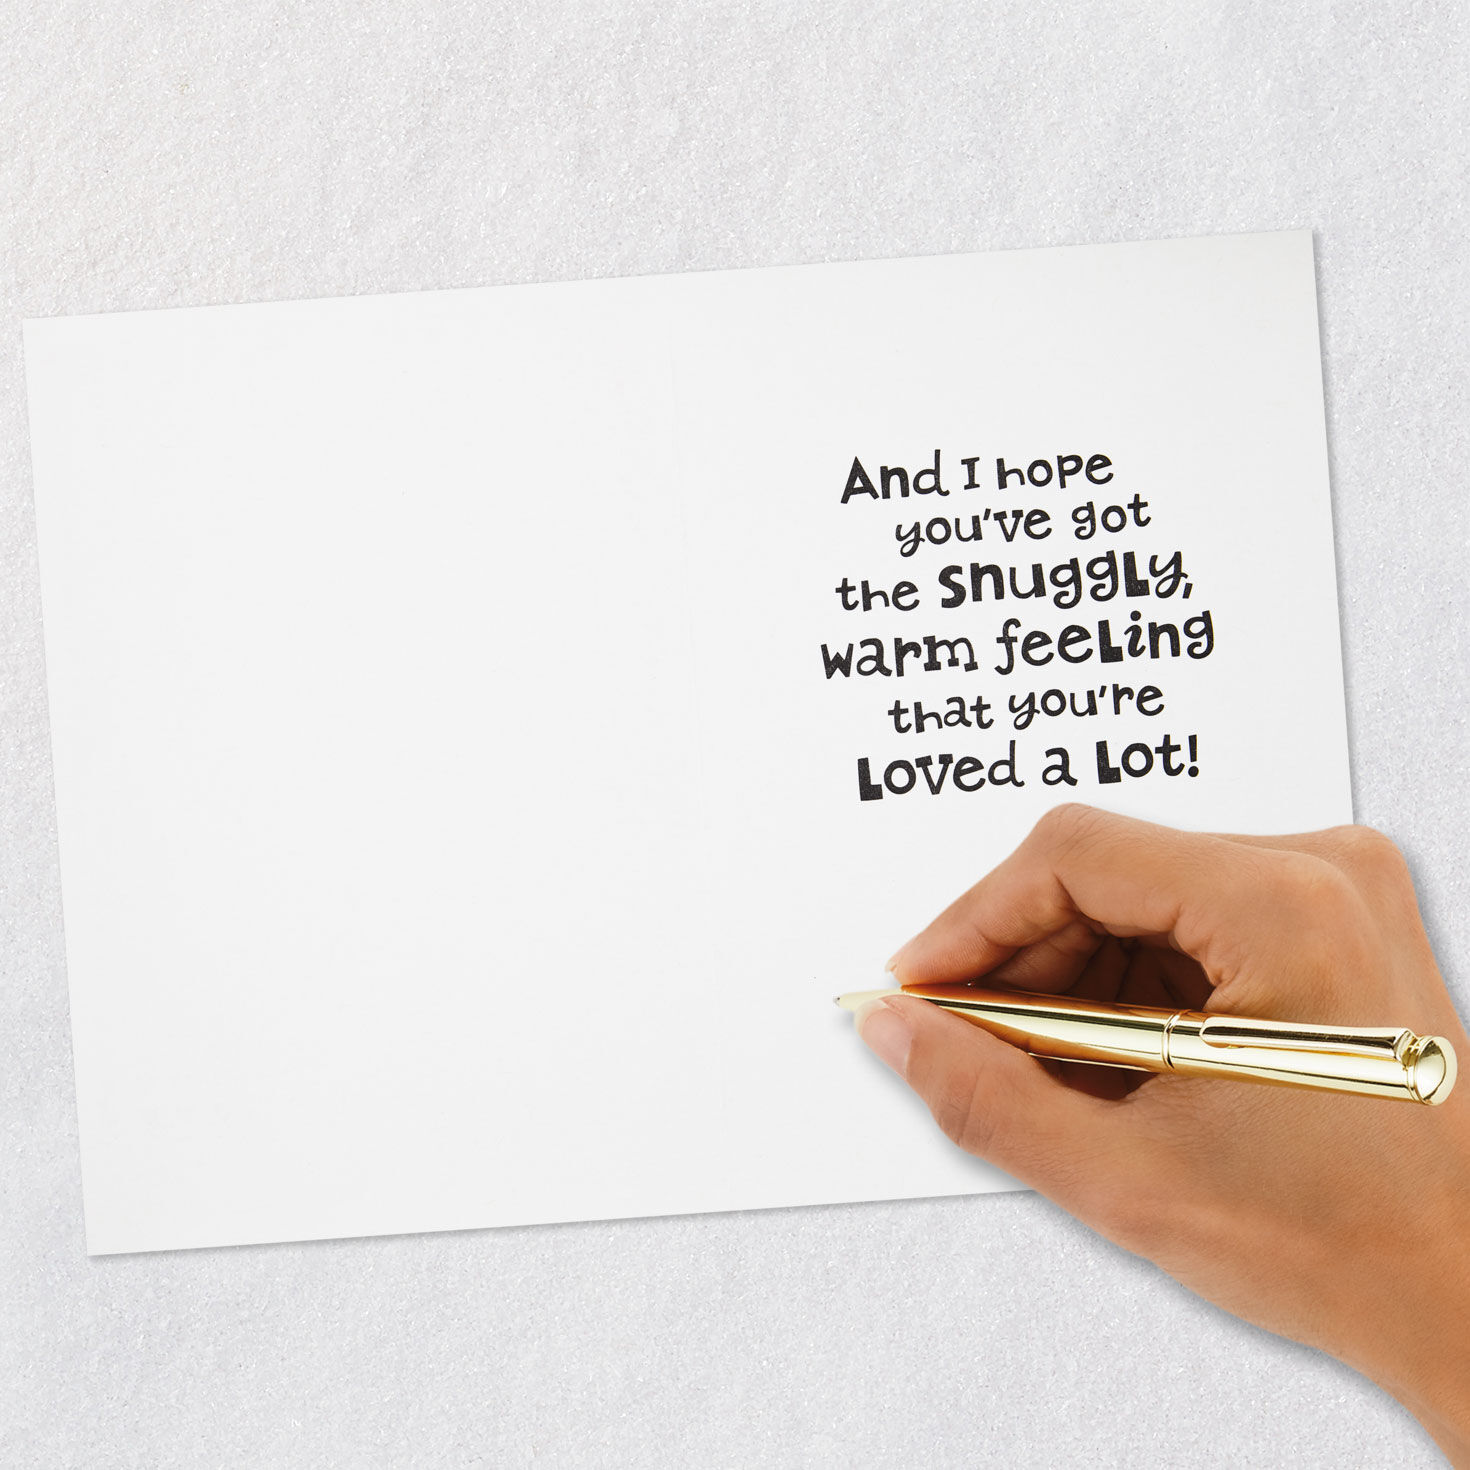 And I hope
you've got
the snuggly,
warm feeling
that you're
Loved a Lot!